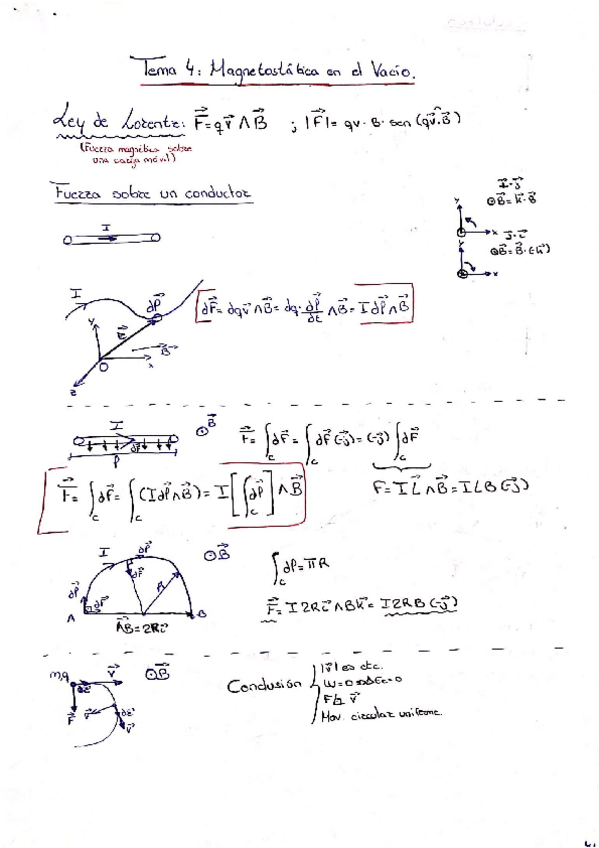 Tema 4: Magnetostática en el Vacío.
Ley de Lorentz: F⃗=qv⃗ ∧ B⃗ ; |F⃗|= qv· B· sen (qv⃗,B⃗)
(Fuerza magnética sobre
una carga móvil)
Fuerza sobre un conductor
y
⊙B⃗=k⃗·B
x
I
y
⊗B⃗=B⃗·(-k⃗)
x
I
dl⃗
dF⃗= dqv⃗ ∧B⃗= dq· dl⃗/dt ∧B⃗= I dl⃗∧B⃗
y
r⃗
B⃗
O
x
z
I
⊙B⃗
dF⃗
l
F⃗= ∫c dF⃗= ∫c dF(-j⃗)= (-j⃗) ∫c dF
F⃗= ∫c dF⃗= ∫c (I dl⃗∧B⃗)= I[∫c dl⃗] ∧B⃗
F= I L⃗ ∧B⃗= ILB(-j⃗)
I
dl⃗
⊙B⃗
dF⃗
R
dl⃗
dF⃗
A
B
AB⃗=2Ri⃗
∫c dl=πR
F⃗= I2Ri⃗ ∧Bk⃗= I2RB(-j⃗)
m,q
v⃗
⊙B⃗
F⃗
v⃗
Conclusión
|v⃗| es cte.
W=0 ⇒ΔEc=0
F⊥ v⃗
Mov. circular uniforme.